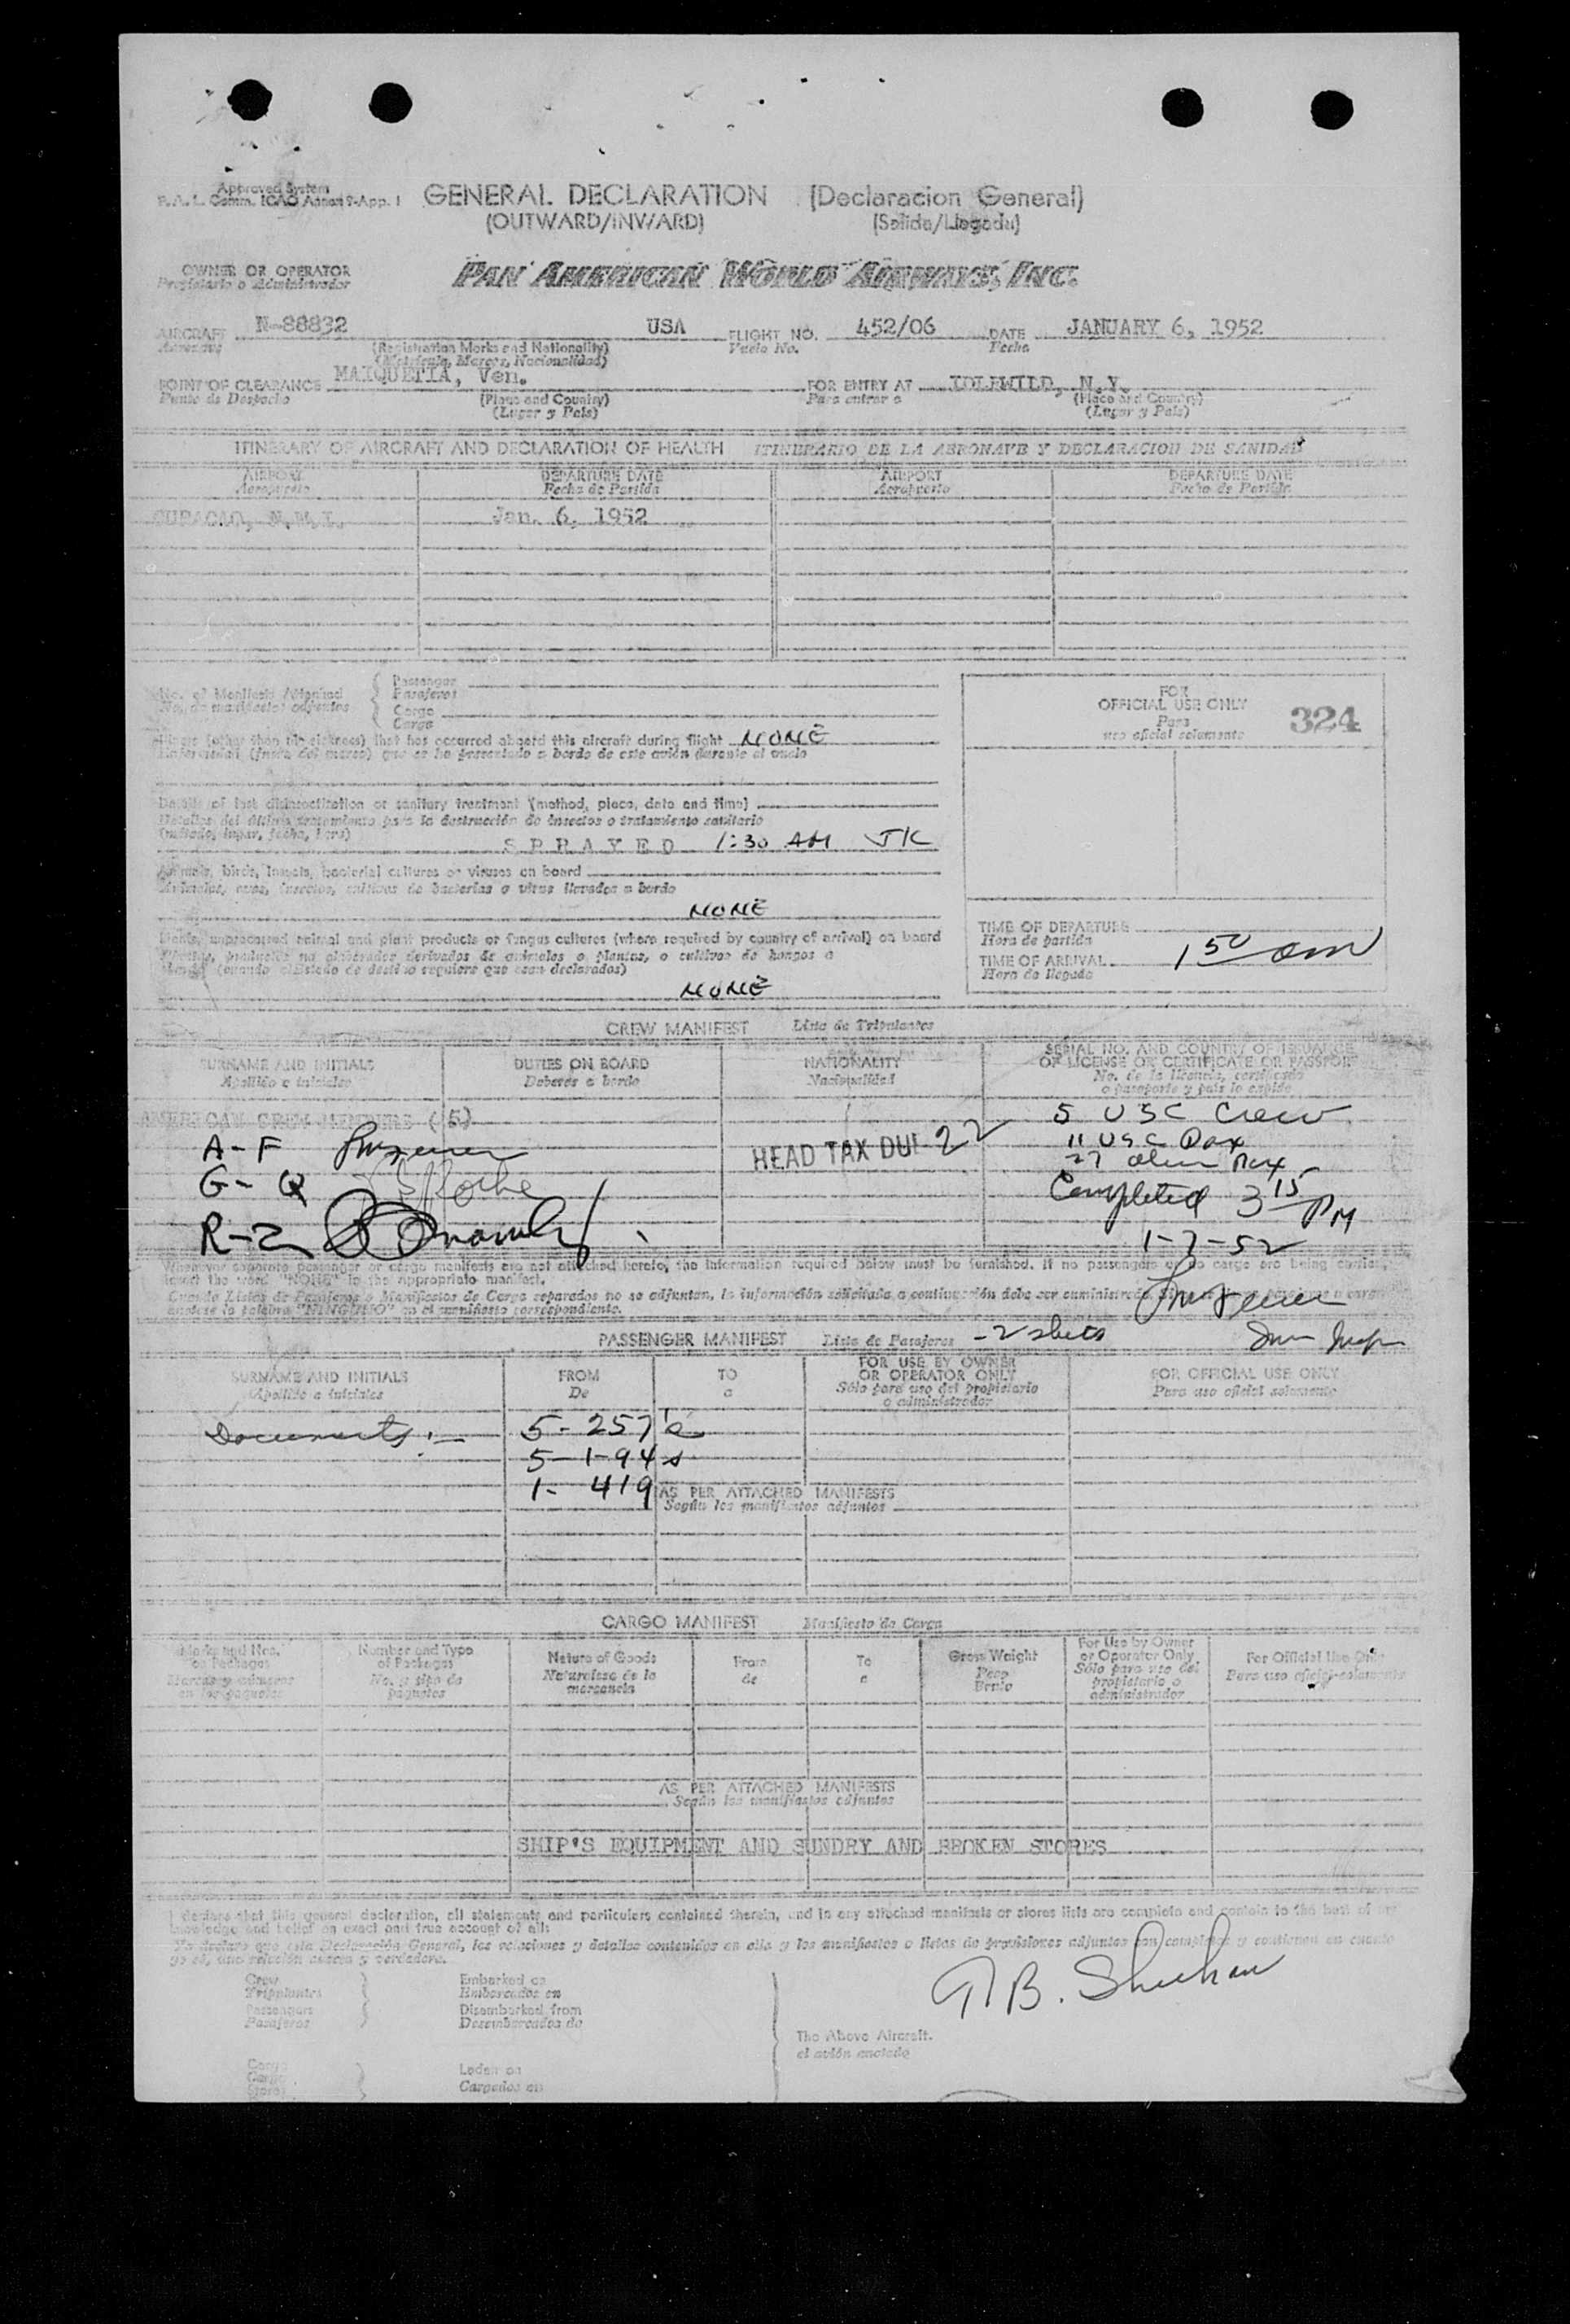 Approved System
F.A.L. Comm. ICAO Annex 9-App. 1
GENERAL DECLARATION (Declaracion General)
(OUTWARD/INWARD) (Salida/Llegada)
OWNER OR OPERATOR
Propietario o Administrador
PAN AMERICAN WORLD AIRWAYS, INC.
AIRCRAFT N-88832 USA FLIGHT NO. 452/06 DATE JANUARY 6, 1952
Aeronave (Registration Marks and Nationality) Vuelo No. Fecha
(Matricula, Marcas, Nacionalidad)
POINT OF CLEARANCE MAIQUETIA, Ven. FOR ENTRY AT IDLEWILD, N.Y.
Punto de Despacho (Place and Country) Para entrar a (Place and Country)
(Lugar y País) (Lugar y País)
ITINERARY OF AIRCRAFT AND DECLARATION OF HEALTH ITINERARIO DE LA AERONAVE Y DECLARACION DE SANIDAD
AIRPORT DEPARTURE DATE AIRPORT DEPARTURE DATE
Aeropuerto Fecha de Partida Aeropuerto Fecha de Partida
CURACAO, N.W.I. Jan. 6, 1952
No. of Manifests Attached Passenger
No. de manifiestos adjuntos Pasajeros
Cargo
Carga
FOR
OFFICIAL USE ONLY
Para
uso oficial solamente
324
Illness (other than air sickness) that has occurred aboard this aircraft during flight NONE
Enfermedad (fuera del mareo) que se ha presentado a bordo de este avión durante el vuelo
Details of last disinsectization or sanitary treatment (method, place, date and time)
Detalles del último tratamiento para la destrucción de insectos o tratamiento sanitario
(método, lugar, fecha, hora)
SPRAYED 1:30 AM JK
Animals, birds, insects, bacterial cultures or viruses on board
Animales, aves, insectos, cultivos de bacterias o virus llevados a bordo
NONE
Plants, unprocessed animal and plant products or fungus cultures (where required by country of arrival) on board
Plantas, productos no elaborados derivados de animales o plantas, o cultivos de hongos a
bordo (cuando el Estado de destino requiere que sean declarados)
NONE
TIME OF DEPARTURE
Hora de partida
TIME OF ARRIVAL 1 50 am
Hora de llegada
CREW MANIFEST Lista de Tripulantes
SURNAME AND INITIALS DUTIES ON BOARD NATIONALITY SERIAL NO. AND COUNTRY OF ISSUANCE
OF LICENSE OR CERTIFICATE OR PASSPORT
Apellido e iniciales Deberes a bordo Nacionalidad No. de la licencia, certificado
o pasaporte y país lo expide
AMERICAN CREW MEMBERS (5)
5 USC Crew
A-F
HEAD TAX DUE 22
11 USC Pax
27 alien Pax
G-Q
Completed 3 15 PM
R-Z
1-7-52
Whenever separate passenger or cargo manifests are not attached hereto, the information required below must be furnished. If no passengers or no cargo are being carried,
insert the word "NONE" in the appropriate manifest.
Cuando Listas de Pasajeros o Manifiestos de Carga separados no se adjuntan, la información solicitada a continuación debe ser suministrada.
anótese la palabra "NINGUNO" en el manifiesto correspondiente.
PASSENGER MANIFEST Lista de Pasajeros - 2 sheets
Imm Insp
SURNAME AND INITIALS FROM TO FOR USE BY OWNER
OR OPERATOR ONLY FOR OFFICIAL USE ONLY
Apellido e iniciales De a Sólo para uso del propietario
o administrador Para uso oficial solamente
Documents:- 5-257's
5-I-94s
1-419
AS PER ATTACHED MANIFESTS
Según los manifiestos adjuntos
CARGO MANIFEST Manifiesto de Carga
Marks and Nos.
on Packages
Marcas y números
en los paquetes
Number and Type
of Packages
No. y tipo de
paquetes
Nature of Goods
Naturaleza de la
mercancía
From
de
To
a
Gross Weight
Peso
Bruto
For Use by Owner
or Operator Only
Sólo para uso del
propietario o
administrador
For Official Use Only
Para uso oficial solamente
AS PER ATTACHED MANIFESTS
Según los manifiestos adjuntos
SHIP'S EQUIPMENT AND SUNDRY AND BROKEN STORES
I declare that this general declaration, all statements and particulars contained therein, and in any attached manifests or stores lists are complete and contain to the best of my
knowledge and belief an exact and true account of all:
Yo declaro que esta Declaración General, las relaciones y detalles contenidos en ella y los manifiestos o listas de provisiones adjuntos son completos y contienen en cuanto
yo sé, una relación exacta y verdadera.
Crew Embarked on
Tripulantes Embarcados en
Passengers Disembarked from
Pasajeros Desembarcados de
B. Sheehan
The Above Aircraft.
el avión anotado
Cargo Laden on
Carga Cargados en
Stores